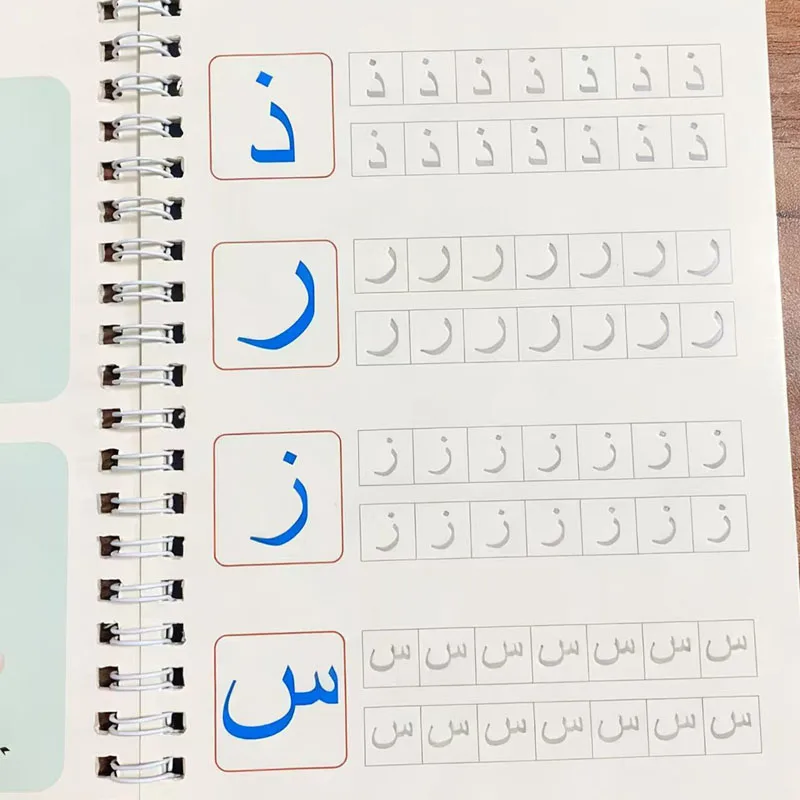 ذ
ذ ذ ذ ذ ذ ذ ذ
ذ ذ ذ ذ ذ ذ ذ
ر
ر ر ر ر ر ر ر
ر ر ر ر ر ر ر
ز
ز ز ز ز ز ز ز
ز ز ز ز ز ز ز
س
س س س س س س س
س س س س س س س